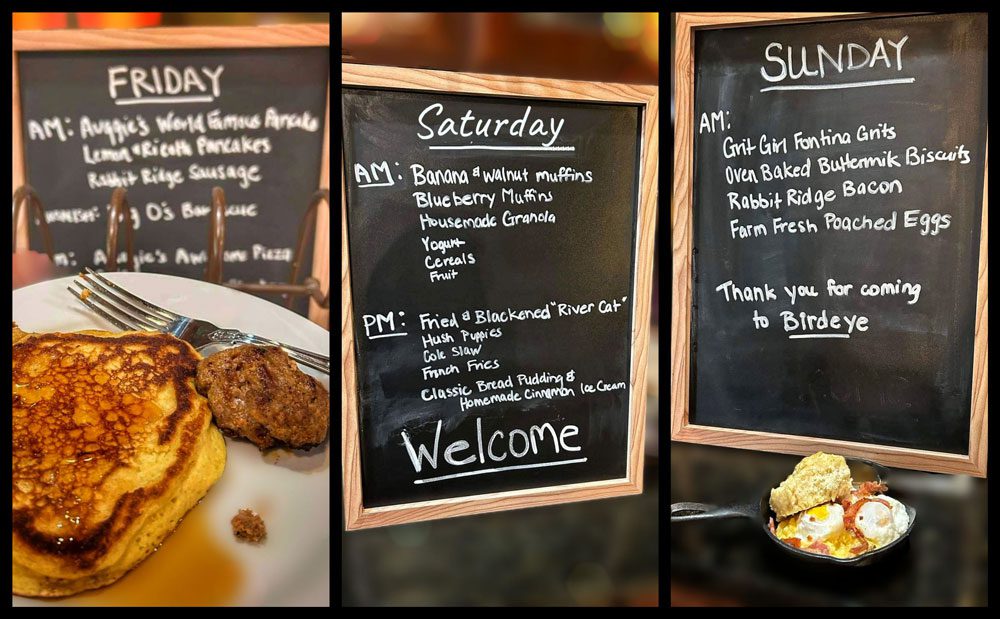 FRIDAY
AM: Auggie's World Famous Pancake
Lemon & Ricotta Pancakes
Rabbit Ridge Sausage
O's
Pizza
Saturday
AM: Banana & walnut muffins
Blueberry Muffins
Housemade Granola
Yogurt
Cereals
Fruit
PM: Fried & Blackened "River Cat"
Hush Puppies
Cole Slaw
French Fries
Classic Bread Pudding &
Homemade Cinnamon Ice Cream
Welcome
SUNDAY
AM:
Grit Girl Fontina Grits
Oven Baked Buttermik Biscuits
Rabbit Ridge Bacon
Farm Fresh Poached Eggs
Thank you for coming
to Birdeye